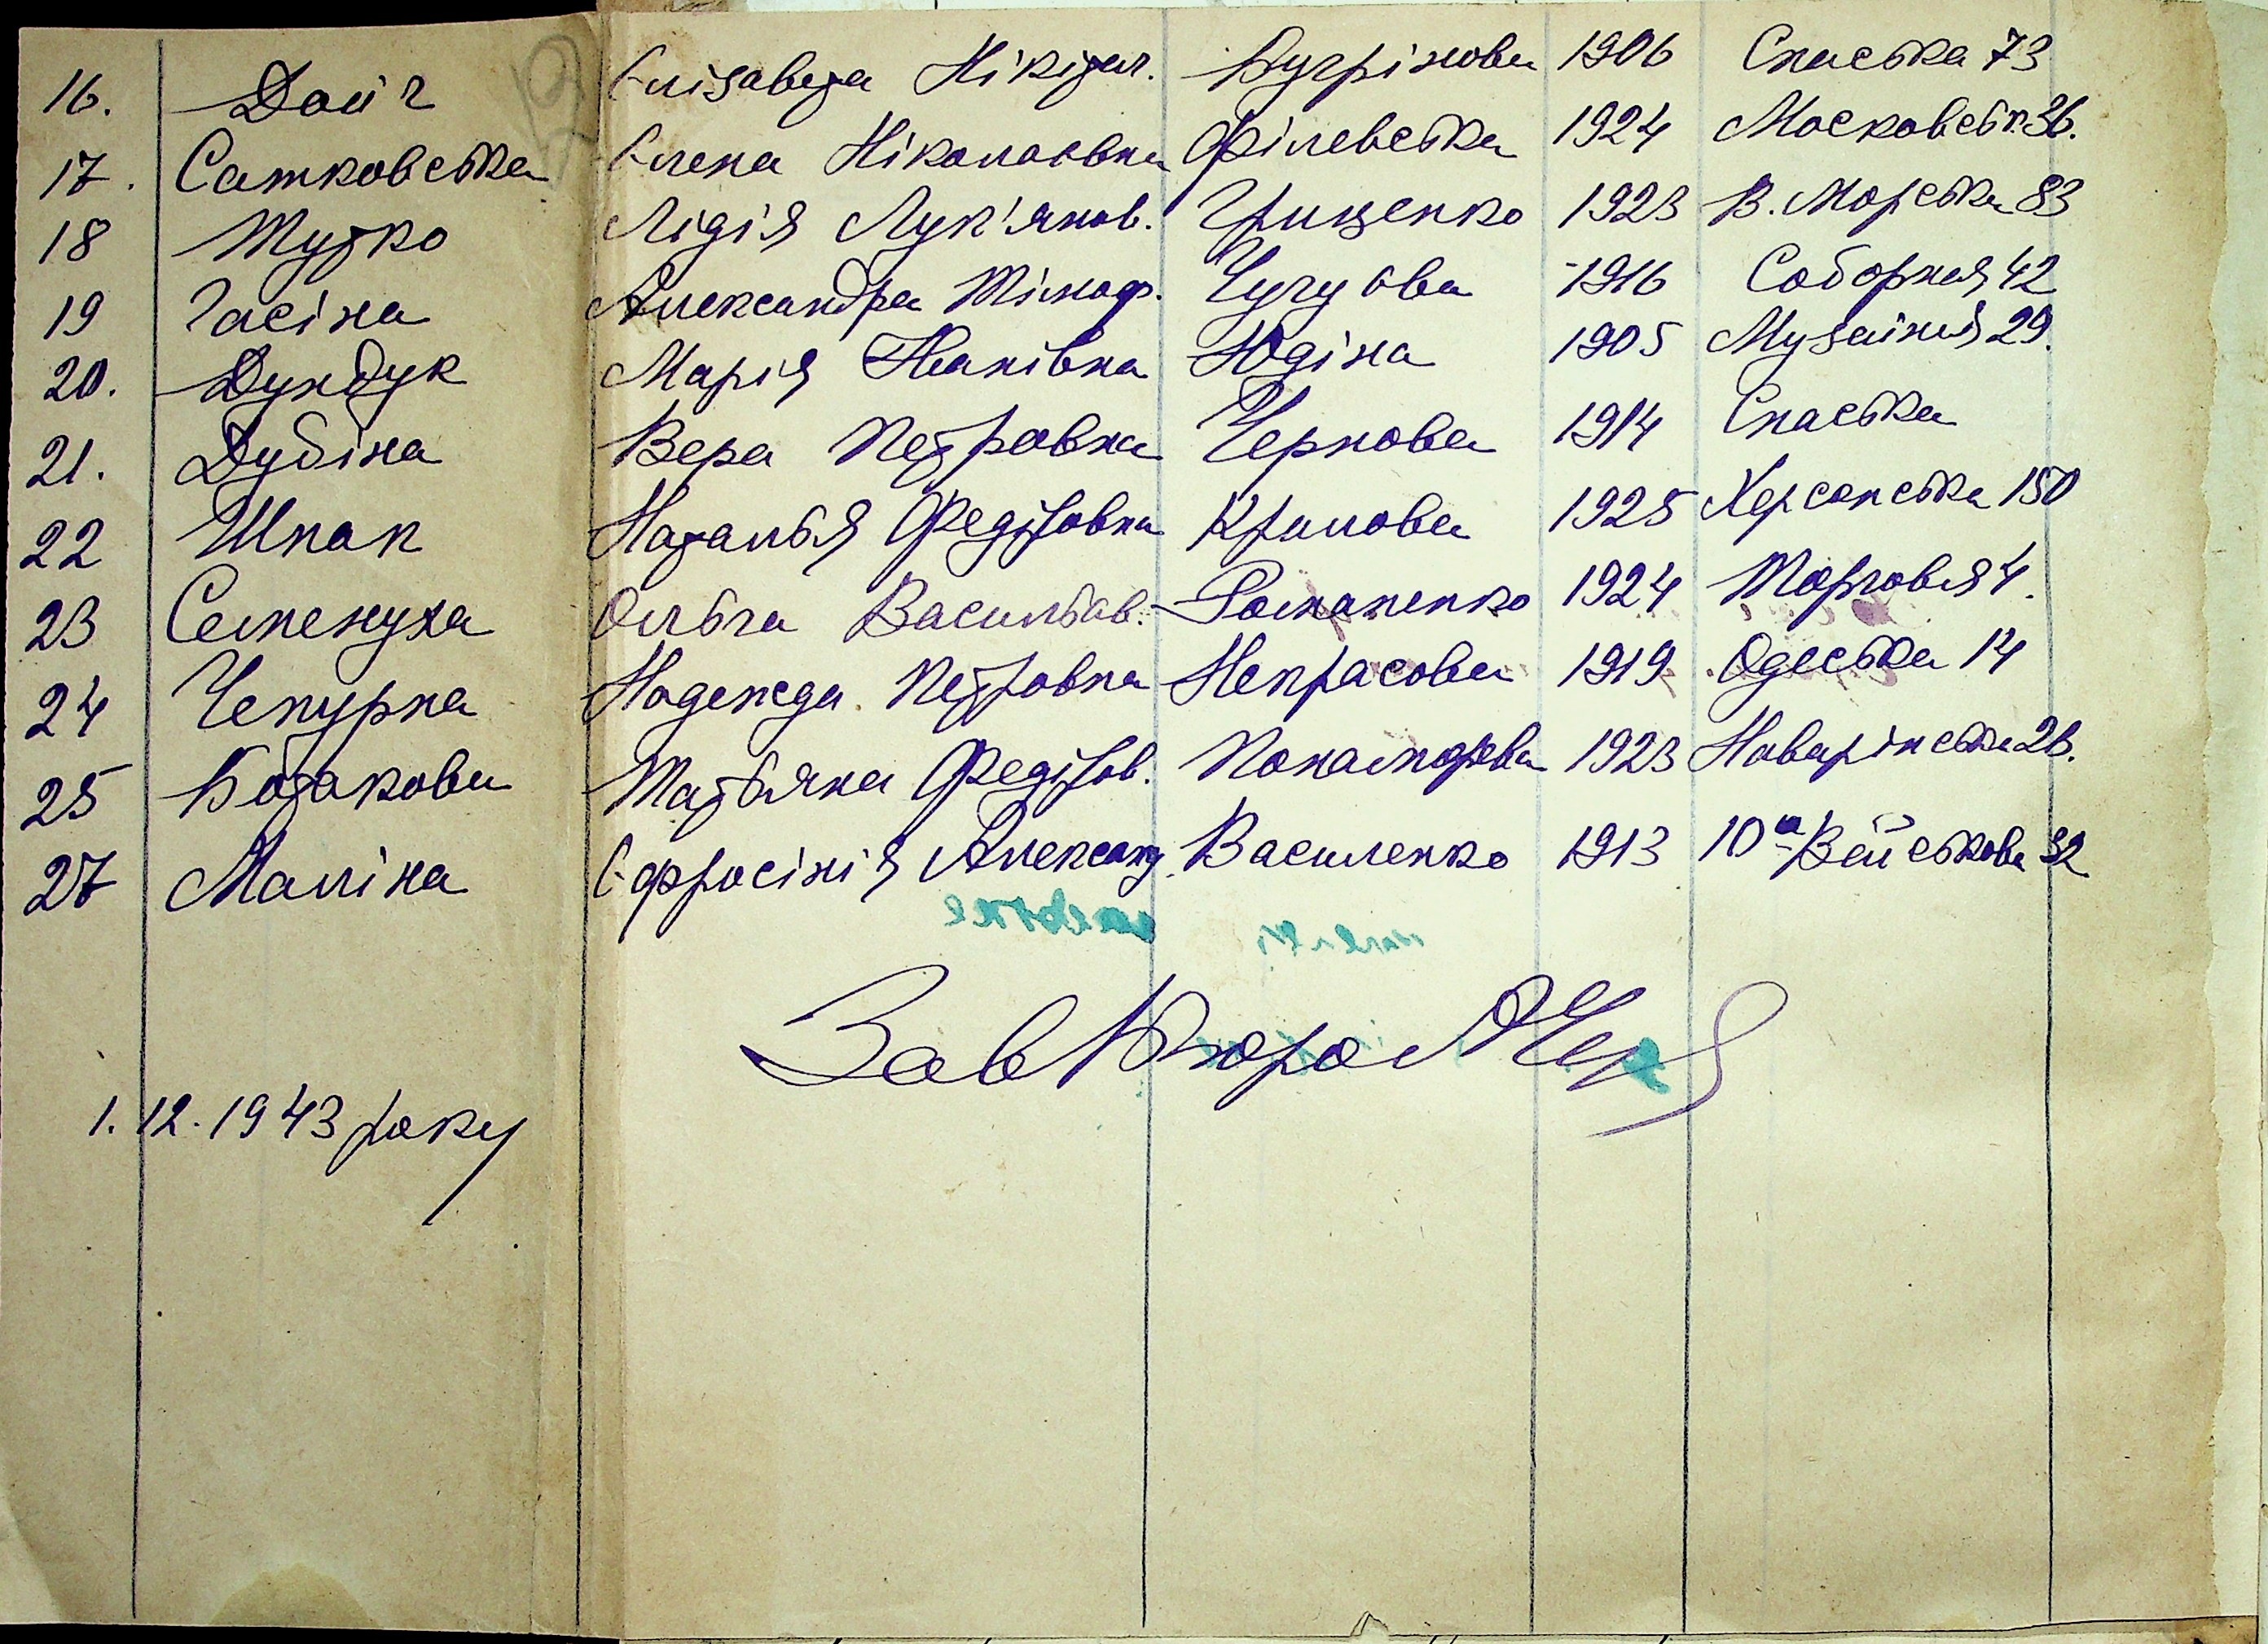 16. Дойч Єлізавета Нікітич. Бугрінова 1906 Спаська 73
17. Сатковська Єлена Ніколаєвна Філевська 1924 Московськ. 36.
18 Тутко Лідія Лук'янов. Грищенко 1923 В. Морська 83
19 Гасіна Александра Тімоф. Чугуєва 1916 Соборная 42
20. Дундук Марія Іванівна Юдіна 1905 Музейний 29.
21. Дубіна Вера Петровна Чернова 1914 Спаська
22 Шпак Наталья Федіровна Крилова 1925 Херсонська 150
23 Семенуха Ольга Васильєв. Романенко 1924 Торговая 4.
24 Чепурна Надежда Петровна Некрасова 1919 Одеська 14
25 Ботакова Татьяна Федіров. Понаморева 1923 Наварінська 26.
27 Маліна Єфросінія Александ. Василенко 1913 10а Військова 32
Зав Бюро
1.12.1943 року